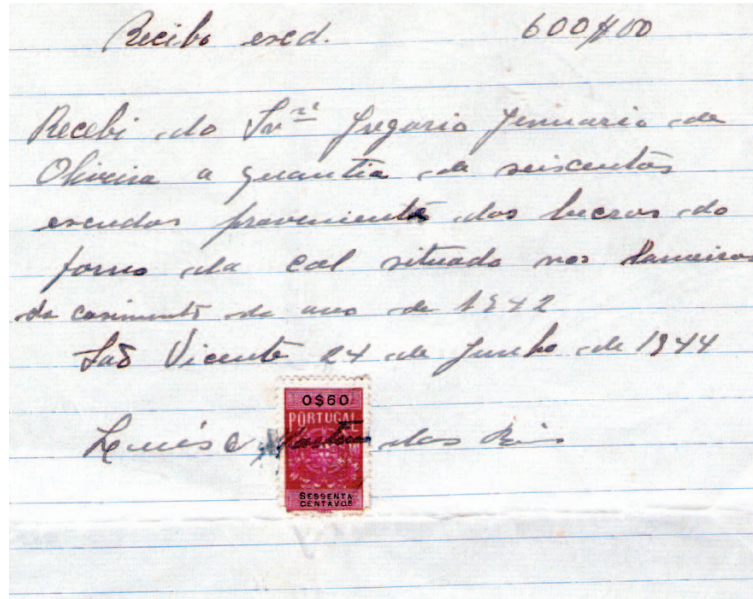 Recibo escd. 600$00
Recebi do Snr. Gregorio Jenuario de
Oliveira a quantia de seiscentos
escudos proveniente dos lucros do
forno da cal situado nos Lameiros
da cosimento do ano de 1942
São Vicente 24 de Junho de 1944
0$60
PORTUGAL
dos Reis
SESSENTA
CENTAVOS